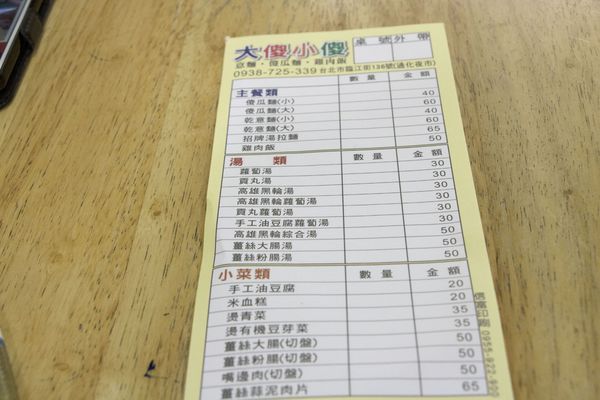 大傻小傻 桌號 外帶
意麵・傻瓜麵・雞肉飯
0938-725-339 台北市臨江街136號(通化夜市)
主餐類 數量 金額
傻瓜麵(小) 40
傻瓜麵(大) 60
乾意麵(小) 40
乾意麵(大) 60
招牌湯拉麵 65
雞肉飯 50
湯類 數量 金額
蘿蔔湯 30
貢丸湯 30
高雄黑輪湯 30
高雄黑輪蘿蔔湯 30
貢丸蘿蔔湯 30
手工油豆腐蘿蔔湯 30
高雄黑輪綜合湯 50
薑絲大腸湯 50
薑絲粉腸湯 50
小菜類 數量 金額
手工油豆腐 20
米血糕 20
燙青菜 35
燙有機豆芽菜 35
薑絲大腸(切盤) 50
薑絲粉腸(切盤) 50
嘴邊肉(切盤) 50
薑絲蒜泥肉片 65